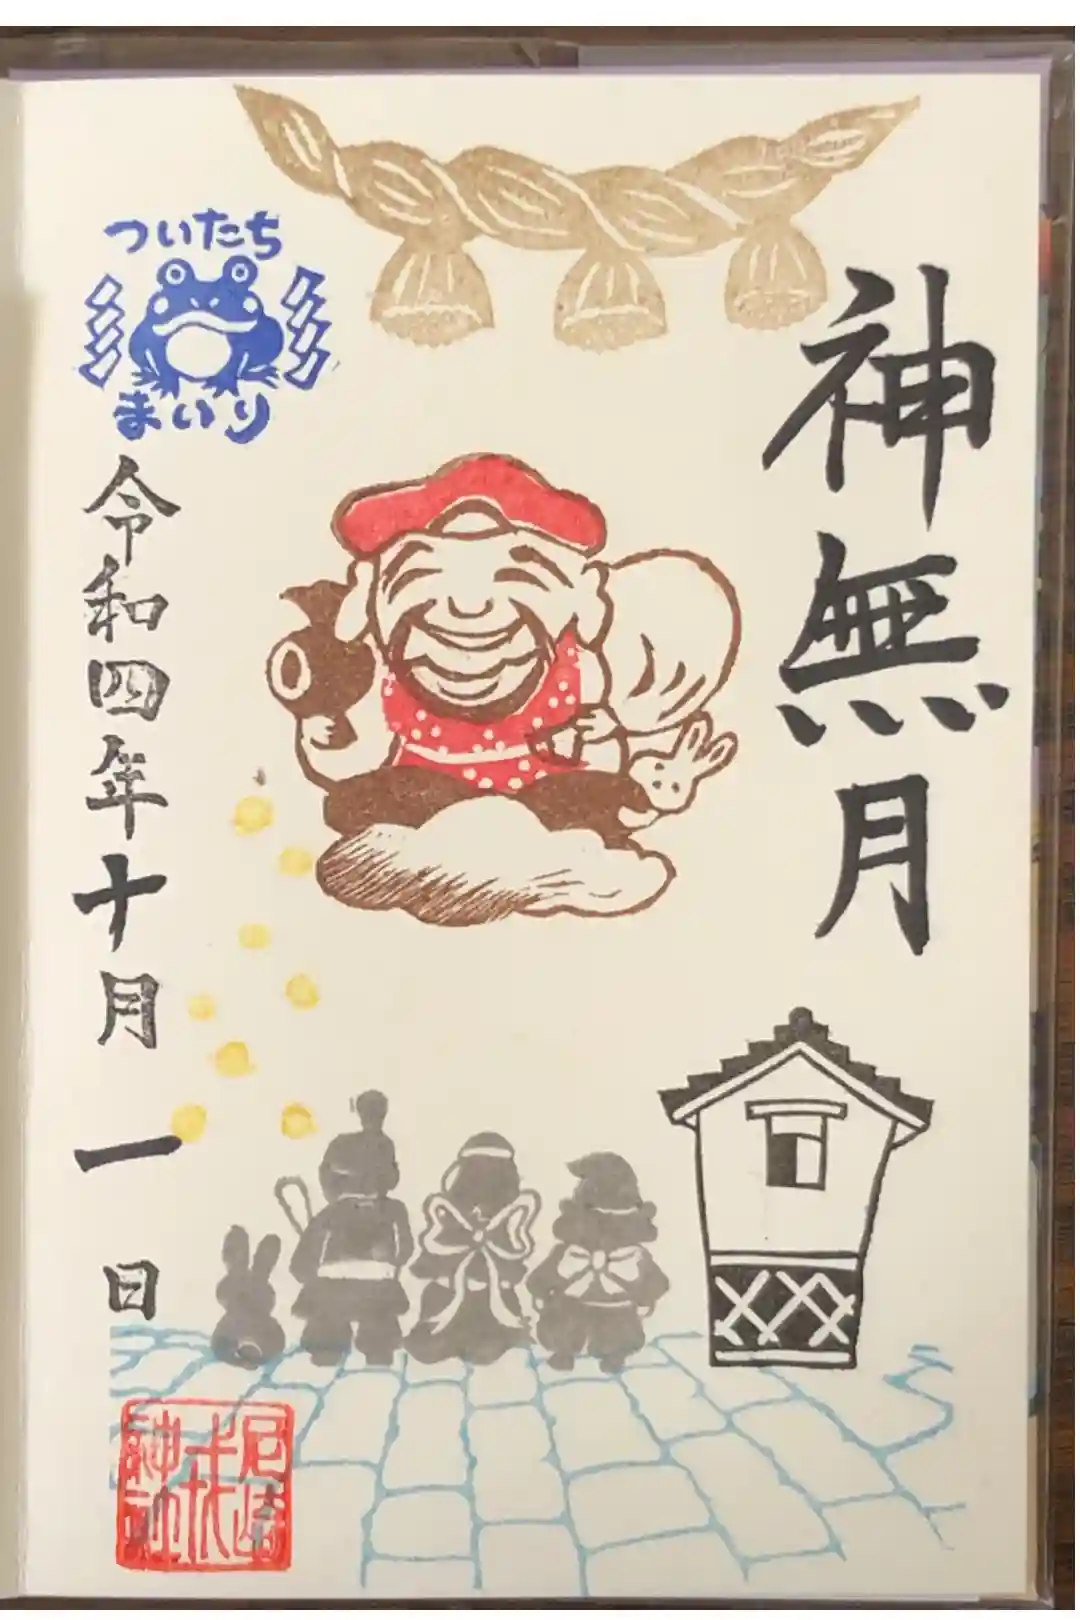 神無月
ついたち
まいり
令和四年十月一日
尼崎
戎
神社